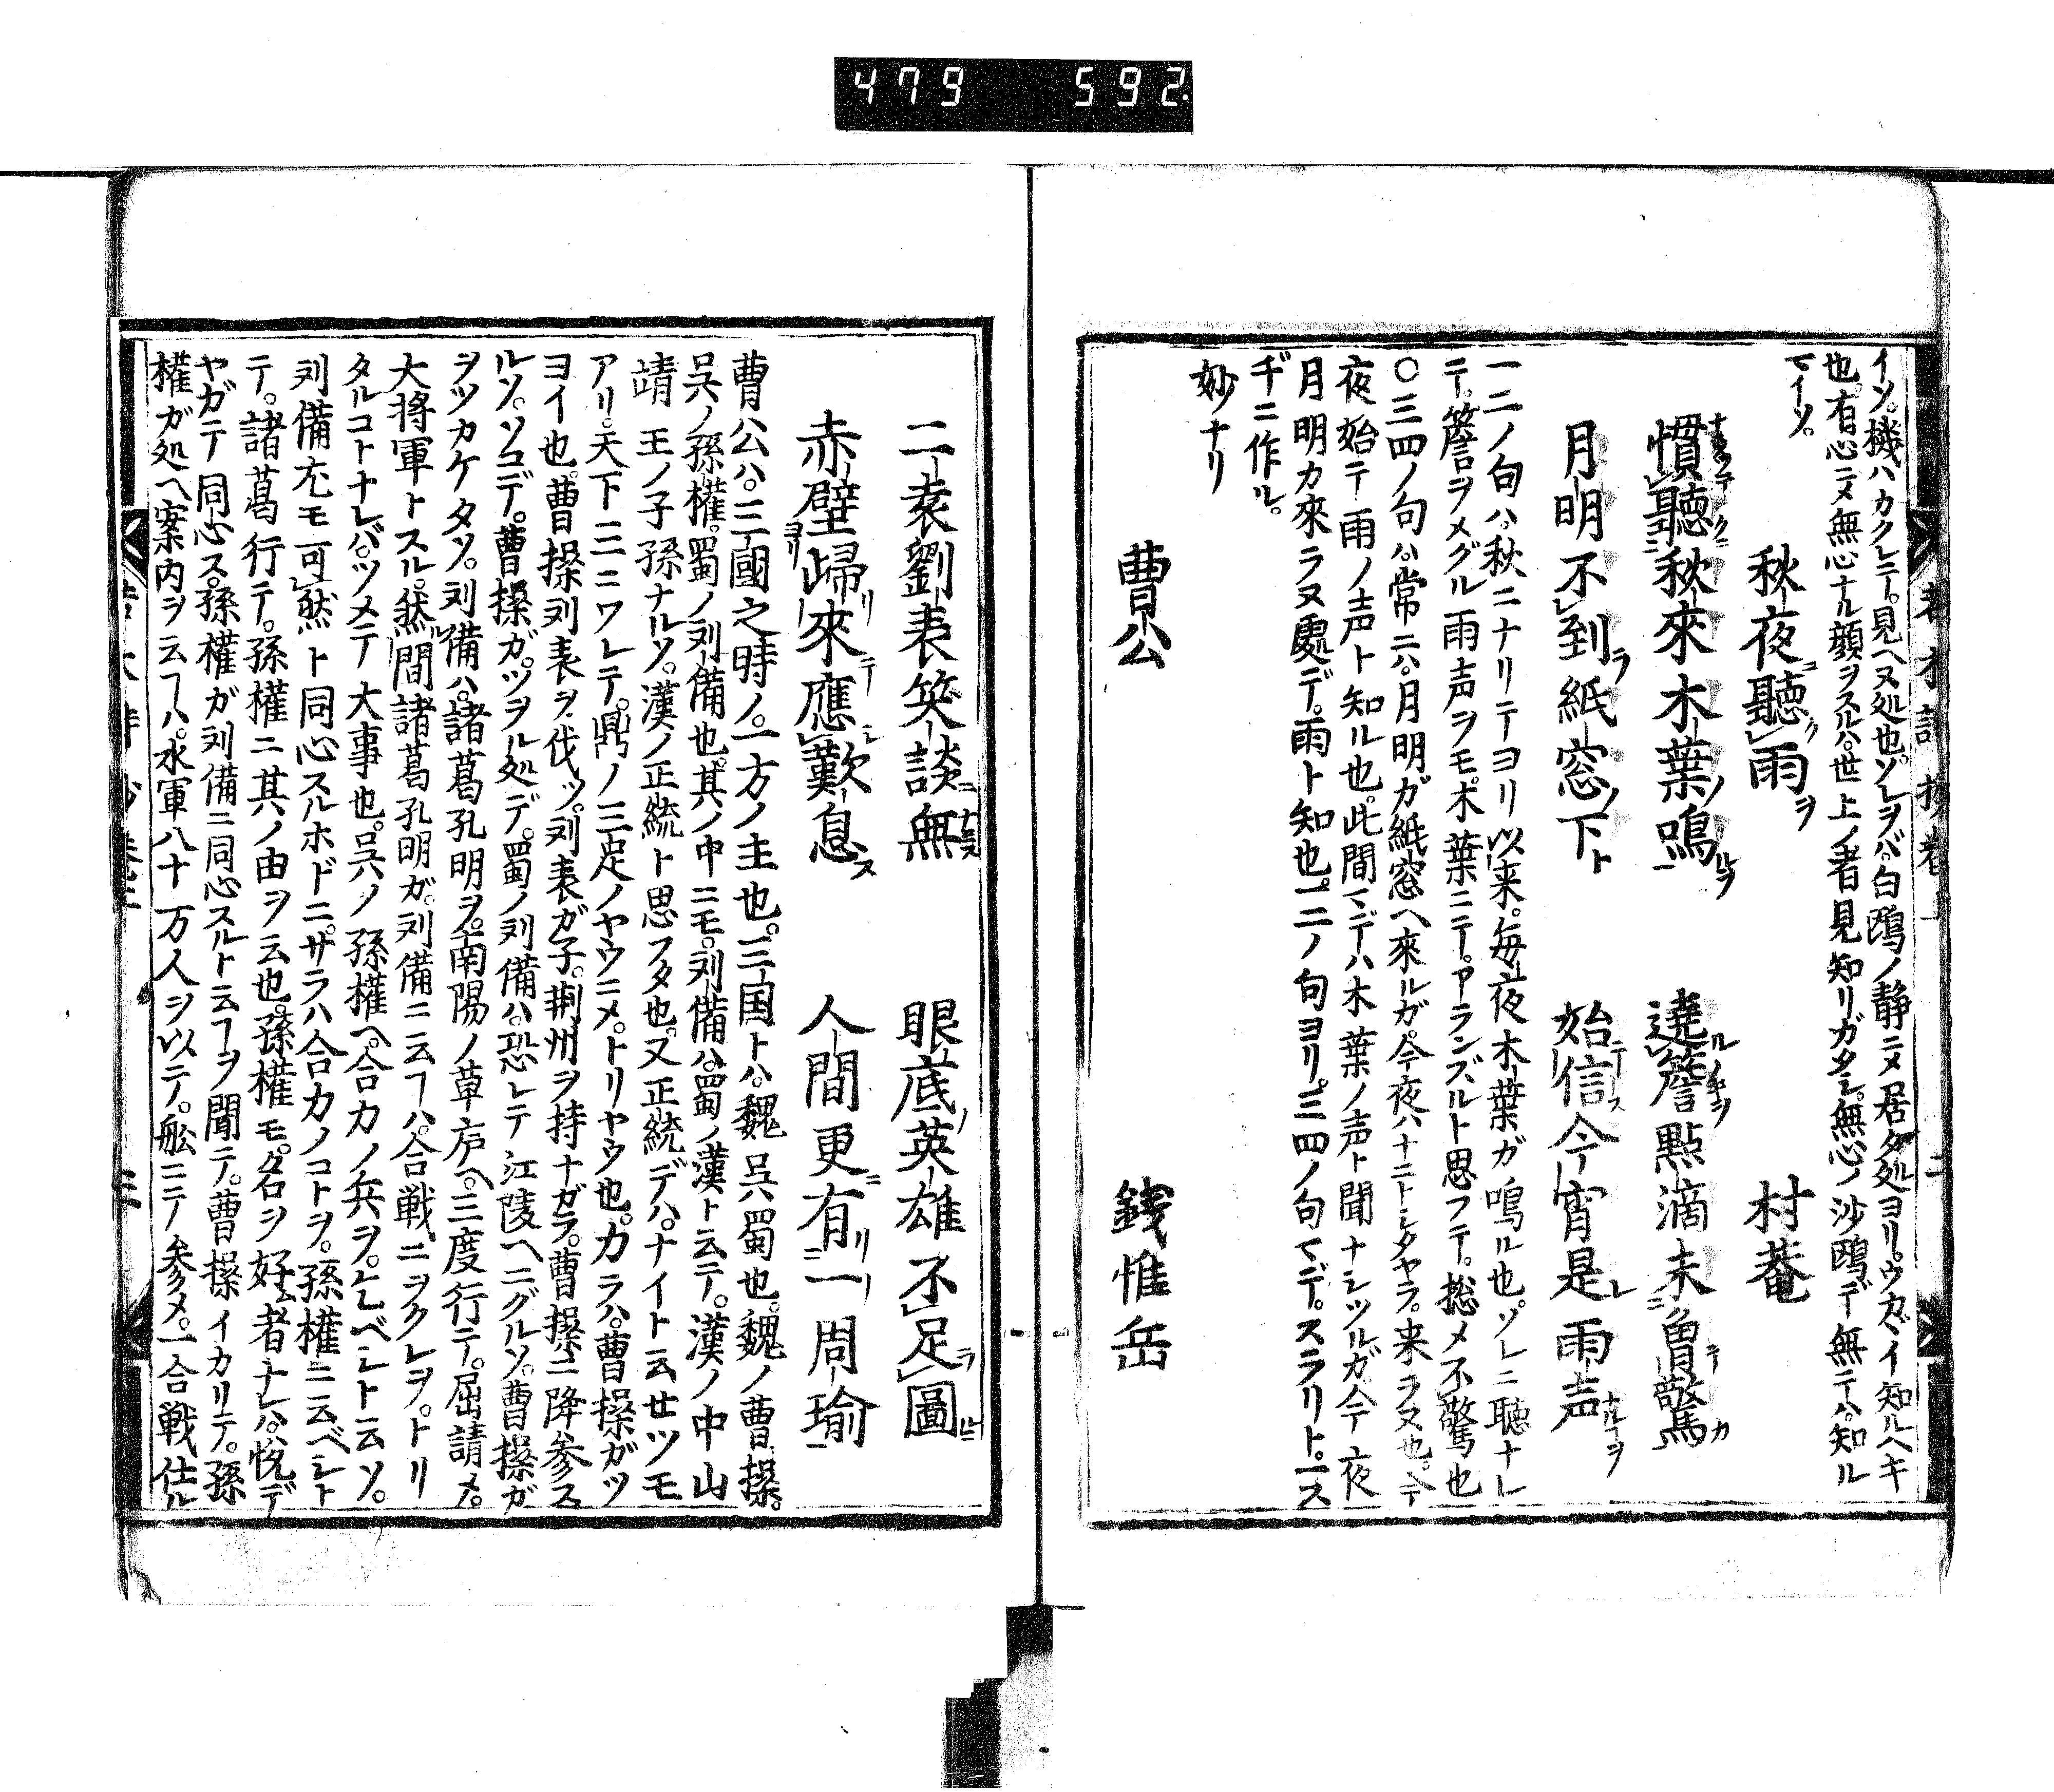 479 592
イソ。機ハカクレテ。見ヘヌ処也。ソレヲバ。白鴎ノ静ニメ居タル処ヨリ。ウカヾイ知ルヘキ
也。有心ニメ無心ナル顔ヲスルハ。世上ノ者見知リガタシ。無心ノ沙鴎デ無テハ。知ル
マイソ。
秋夜聴雨 村菴
慣聴秋來木葉鳴 遶簷點滴未曽驚
月明不到紙窓下 始信今宵是雨声
一二ノ句ハ。秋ニナリテヨリ以来。毎夜木葉ガ鳴ル也。ソレニ聴ナレ
テ。簷ヲメグル雨声ヲモ。木葉ニテ。アランズルト思フテ。総メ不驚也
〇三四ノ句ハ。常ニハ。月明ガ紙窓ヘ來ルガ。今夜ハナニトシタヤラ。来ラヌ也。今
夜始テ雨ノ声ト知ル也。此間マデハ木葉ノ声ト聞ナシツルガ今夜
月明カ來ラヌ處デ。雨ト知也。一二ノ句ヨリ。三四ノ句マデ。スラリト。一ス
ヂニ作ル。
妙ナリ
曹公 銭惟岳
二袁劉表笑談無 眼底英雄不足圖
赤壁歸來應歎息 人間更有一周瑜
曹公ハ。三國之時ノ。一方ノ主也。三国トハ。魏呉蜀也。魏ノ曹操。
呉ノ孫權。蜀ノ刘備也。其ノ中ニモ。刘備ハ。蜀ノ漢ト云テ。漢ノ中山
靖王ノ子孫ナルソ。漢ノ正統ト思フタ也。又正統デハ。ナイト云セツモ
アリ。天下三ニワレテ。鼎ノ三足ノヤウニメ。トリヤウ也。カラハ。曹操ガツ
ヨイ也。曹操刘表ヲ伐ツ。刘表ガ子。荆州ヲ持ナガラ。曹操ニ降参ス
ルソ。ソコデ。曹操ガ。ツヲル処デ。蜀ノ刘備ハ。恐レテ江陵ヘニグルソ。曹操ガ
ヲツカケタソ。刘備ハ。諸葛孔明ヲ。南陽ノ草庐ヘ。三度行テ。屈請メ。
大将軍トスル。然間諸葛孔明ガ。刘備ニ云フハ。合戦ニヲクレヲ。トリ
タルコトナレバ。ツメテ大事也。呉ノ孫權ヘ。合力ノ兵ヲ。乞ベシト云ソ。
刘備尤モ可然ト同心スルホドニ。サラハ合力ノコトヲ。孫權ニ云ベシト
テ。諸葛行テ。孫權ニ其ノ由ヲ云也。孫權モ。名ヲ好ム者ナレハ。悦デ
ヤガテ同心ス。孫權ガ刘備ニ同心スルト云フヲ聞テ。曹操イカリテ。孫
權ガ処ヘ案内ヲ云フハ。水軍八十万人ヲ以テ。舩ニテ参メ。一合戦仕ル